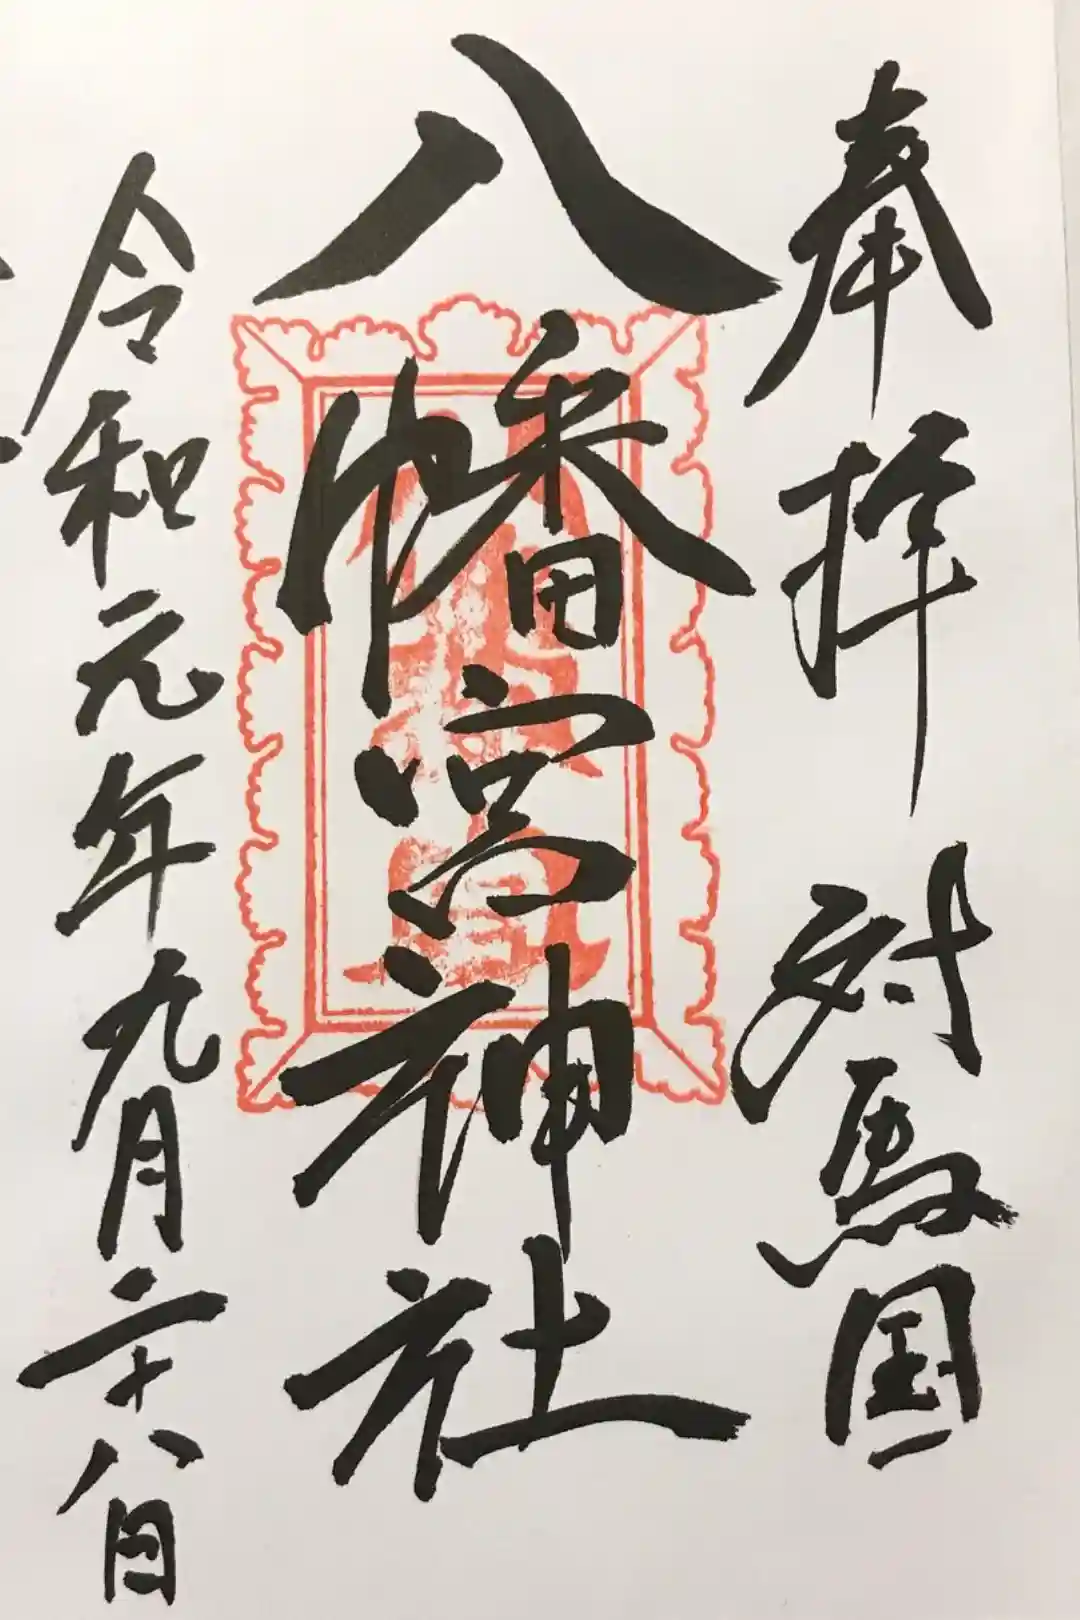 奉拝 対馬国一
八幡宮神社
令和元年九月二十八日